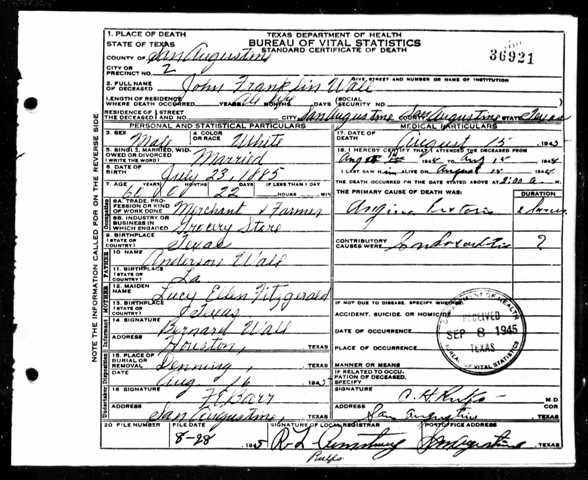 36921
TEXAS DEPARTMENT OF HEALTH
BUREAU OF VITAL STATISTICS
STANDARD CERTIFICATE OF DEATH
1. PLACE OF DEATH
STATE OF TEXAS
COUNTY OF San Augustine
CITY OR PRECINCT NO. 2
GIVE STREET AND NUMBER OR NAME OF INSTITUTION
2. FULL NAME OF DECEASED John Franklin Wall
LENGTH OF RESIDENCE WHERE DEATH OCCURRED YEARS MONTHS DAYS SOCIAL SECURITY NO.
RESIDENCE OF THE DECEASED STREET NO. CITY San Augustine COUNTY San Augustine STATE Texas
PERSONAL AND STATISTICAL PARTICULARS
3. SEX Male 4. COLOR OR RACE White
5. SINGLE, MARRIED, WIDOWED OR DIVORCED (WRITE THE WORD) Married
6. DATE OF BIRTH July 23 1885
7. AGE 22 IF LESS THAN 1 DAY HOURS MIN
8A. TRADE, PROFESSION OR KIND OF WORK DONE Merchant & Farmer
8B. INDUSTRY OR BUSINESS IN WHICH ENGAGED Grocery Store
9. BIRTHPLACE (STATE OR COUNTRY) Texas
10. NAME Anderson Wall
11. BIRTHPLACE (STATE OR COUNTRY) La
12. MAIDEN NAME Lucy Ellen Fitzgerald
13. BIRTHPLACE (STATE OR COUNTRY) Texas
14. SIGNATURE Bernard Wall
ADDRESS Houston, TEXAS
15. PLACE OF BURIAL OR REMOVAL Denning, TEXAS
DATE Aug 16 1945
16. SIGNATURE
ADDRESS San Augustine, TEXAS
MEDICAL PARTICULARS
17. DATE OF DEATH August 15 1945
18. I HEREBY CERTIFY THAT I ATTENDED THE DECEASED FROM
TO Aug
I LAST SAW HIM ALIVE ON August
THE DEATH OCCURRED ON THE DATE STATED ABOVE AT 2:00 a M.
THE PRIMARY CAUSE OF DEATH WAS: DURATION
Angina Pectoris
CONTRIBUTORY CAUSES WERE: ?
IF NOT DUE TO DISEASE, SPECIFY WHETHER:
ACCIDENT, SUICIDE, OR HOMICIDE
DATE OF OCCURRENCE
PLACE OF OCCURRENCE
MANNER OR MEANS
IF RELATED TO OCCUPATION OF DECEASED, SPECIFY
SIGNATURE M.D.
ADDRESS San Augustine COR. TEXAS
RECEIVED
SEP 8 1945
TEXAS
BUREAU OF VITAL STATISTICS
20 FILE NUMBER FILE DATE 8-28 1945 SIGNATURE OF LOCAL REGISTRAR POST OFFICE ADDRESS San Augustine, TEXAS
NOTE THE INFORMATION CALLED FOR ON THE REVERSE SIDE
Occupation
FATHER
MOTHER
Informant
Undertaker Disposition